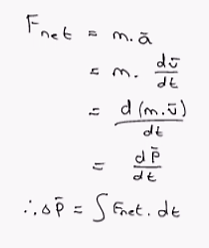 F_net = m.ā
= m. dv̄/dt
= d(m.v̄)/dt
= dP̄/dt
∴ΔP̄ = ∫Fnet.dt